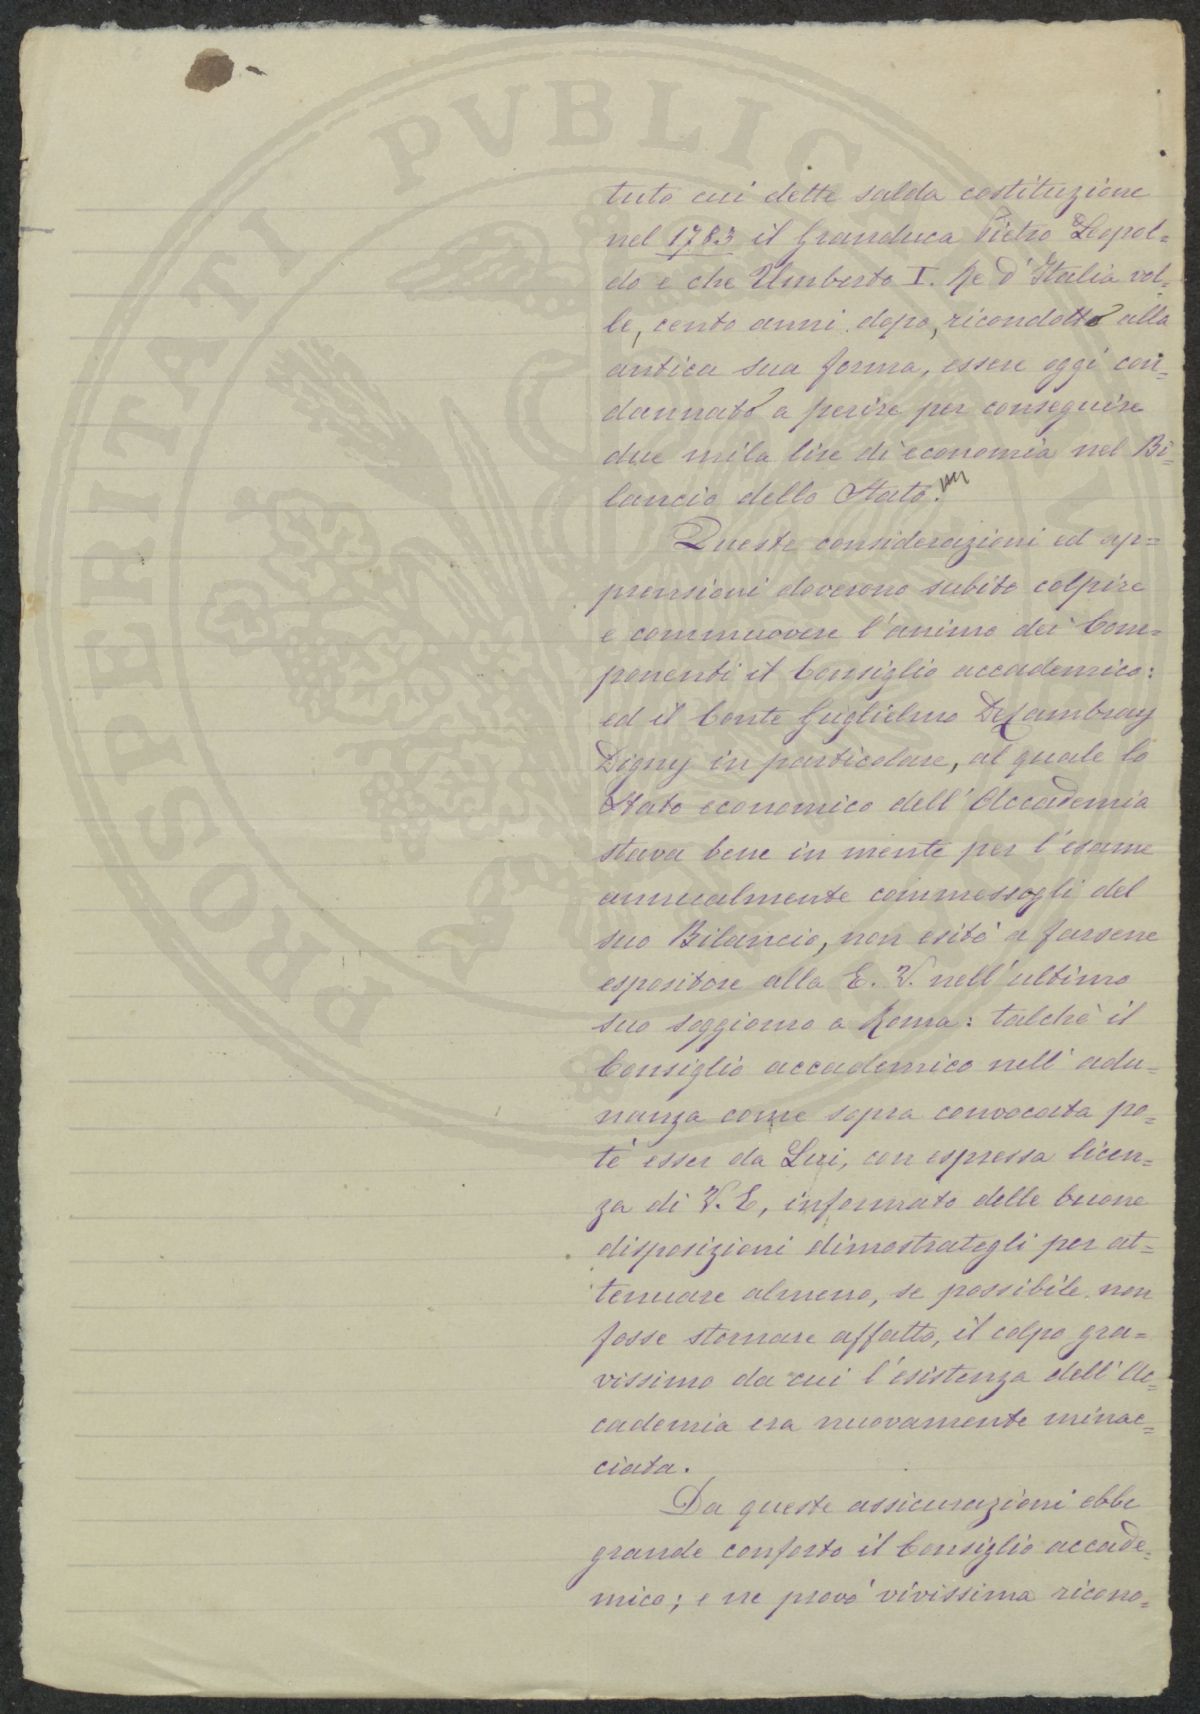 PROSPERITATI PVBLICAE
tuto cui dette salda costituzione
nel 1783 il Granduca Pietro Leopol=
do e che Umberto I. Re d'Italia vol=
le, cento anni dopo, ricondotto alla
antica sua forma, essere oggi con=
dannato a perire per conseguire
due mila lire di economia nel Bi=
lancio dello Stato.
Queste considerazioni ed ap=
prensioni doverono subito colpire
e commuovere l'animo dei Com=
ponenti il Consiglio accademico:
ed il Conte Guglielmo De Cambray
Digny in particolare, al quale lo
Stato economico dell'Accademia
stava bene in mente per l'esame
annualmente commessogli del
suo Bilancio, non esitò a farsene
espositore alla E. V. nell'ultimo
suo soggiorno a Roma: talchè il
Consiglio accademico nell'adu=
nanza come sopra convocata po=
tè esser da Lui, con espressa licen=
za di V. E, informato delle buone
disposizioni dimostrategli per at=
tenuare almeno, se possibile non
fosse stornare affatto, il colpo gra=
vissimo da cui l'esistenza dell'Ac=
cademia era nuovamente minac=
ciata.
Da queste assicurazioni ebbe
grande conforto il Consiglio accade=
mico; e ne provò vivissima ricono=